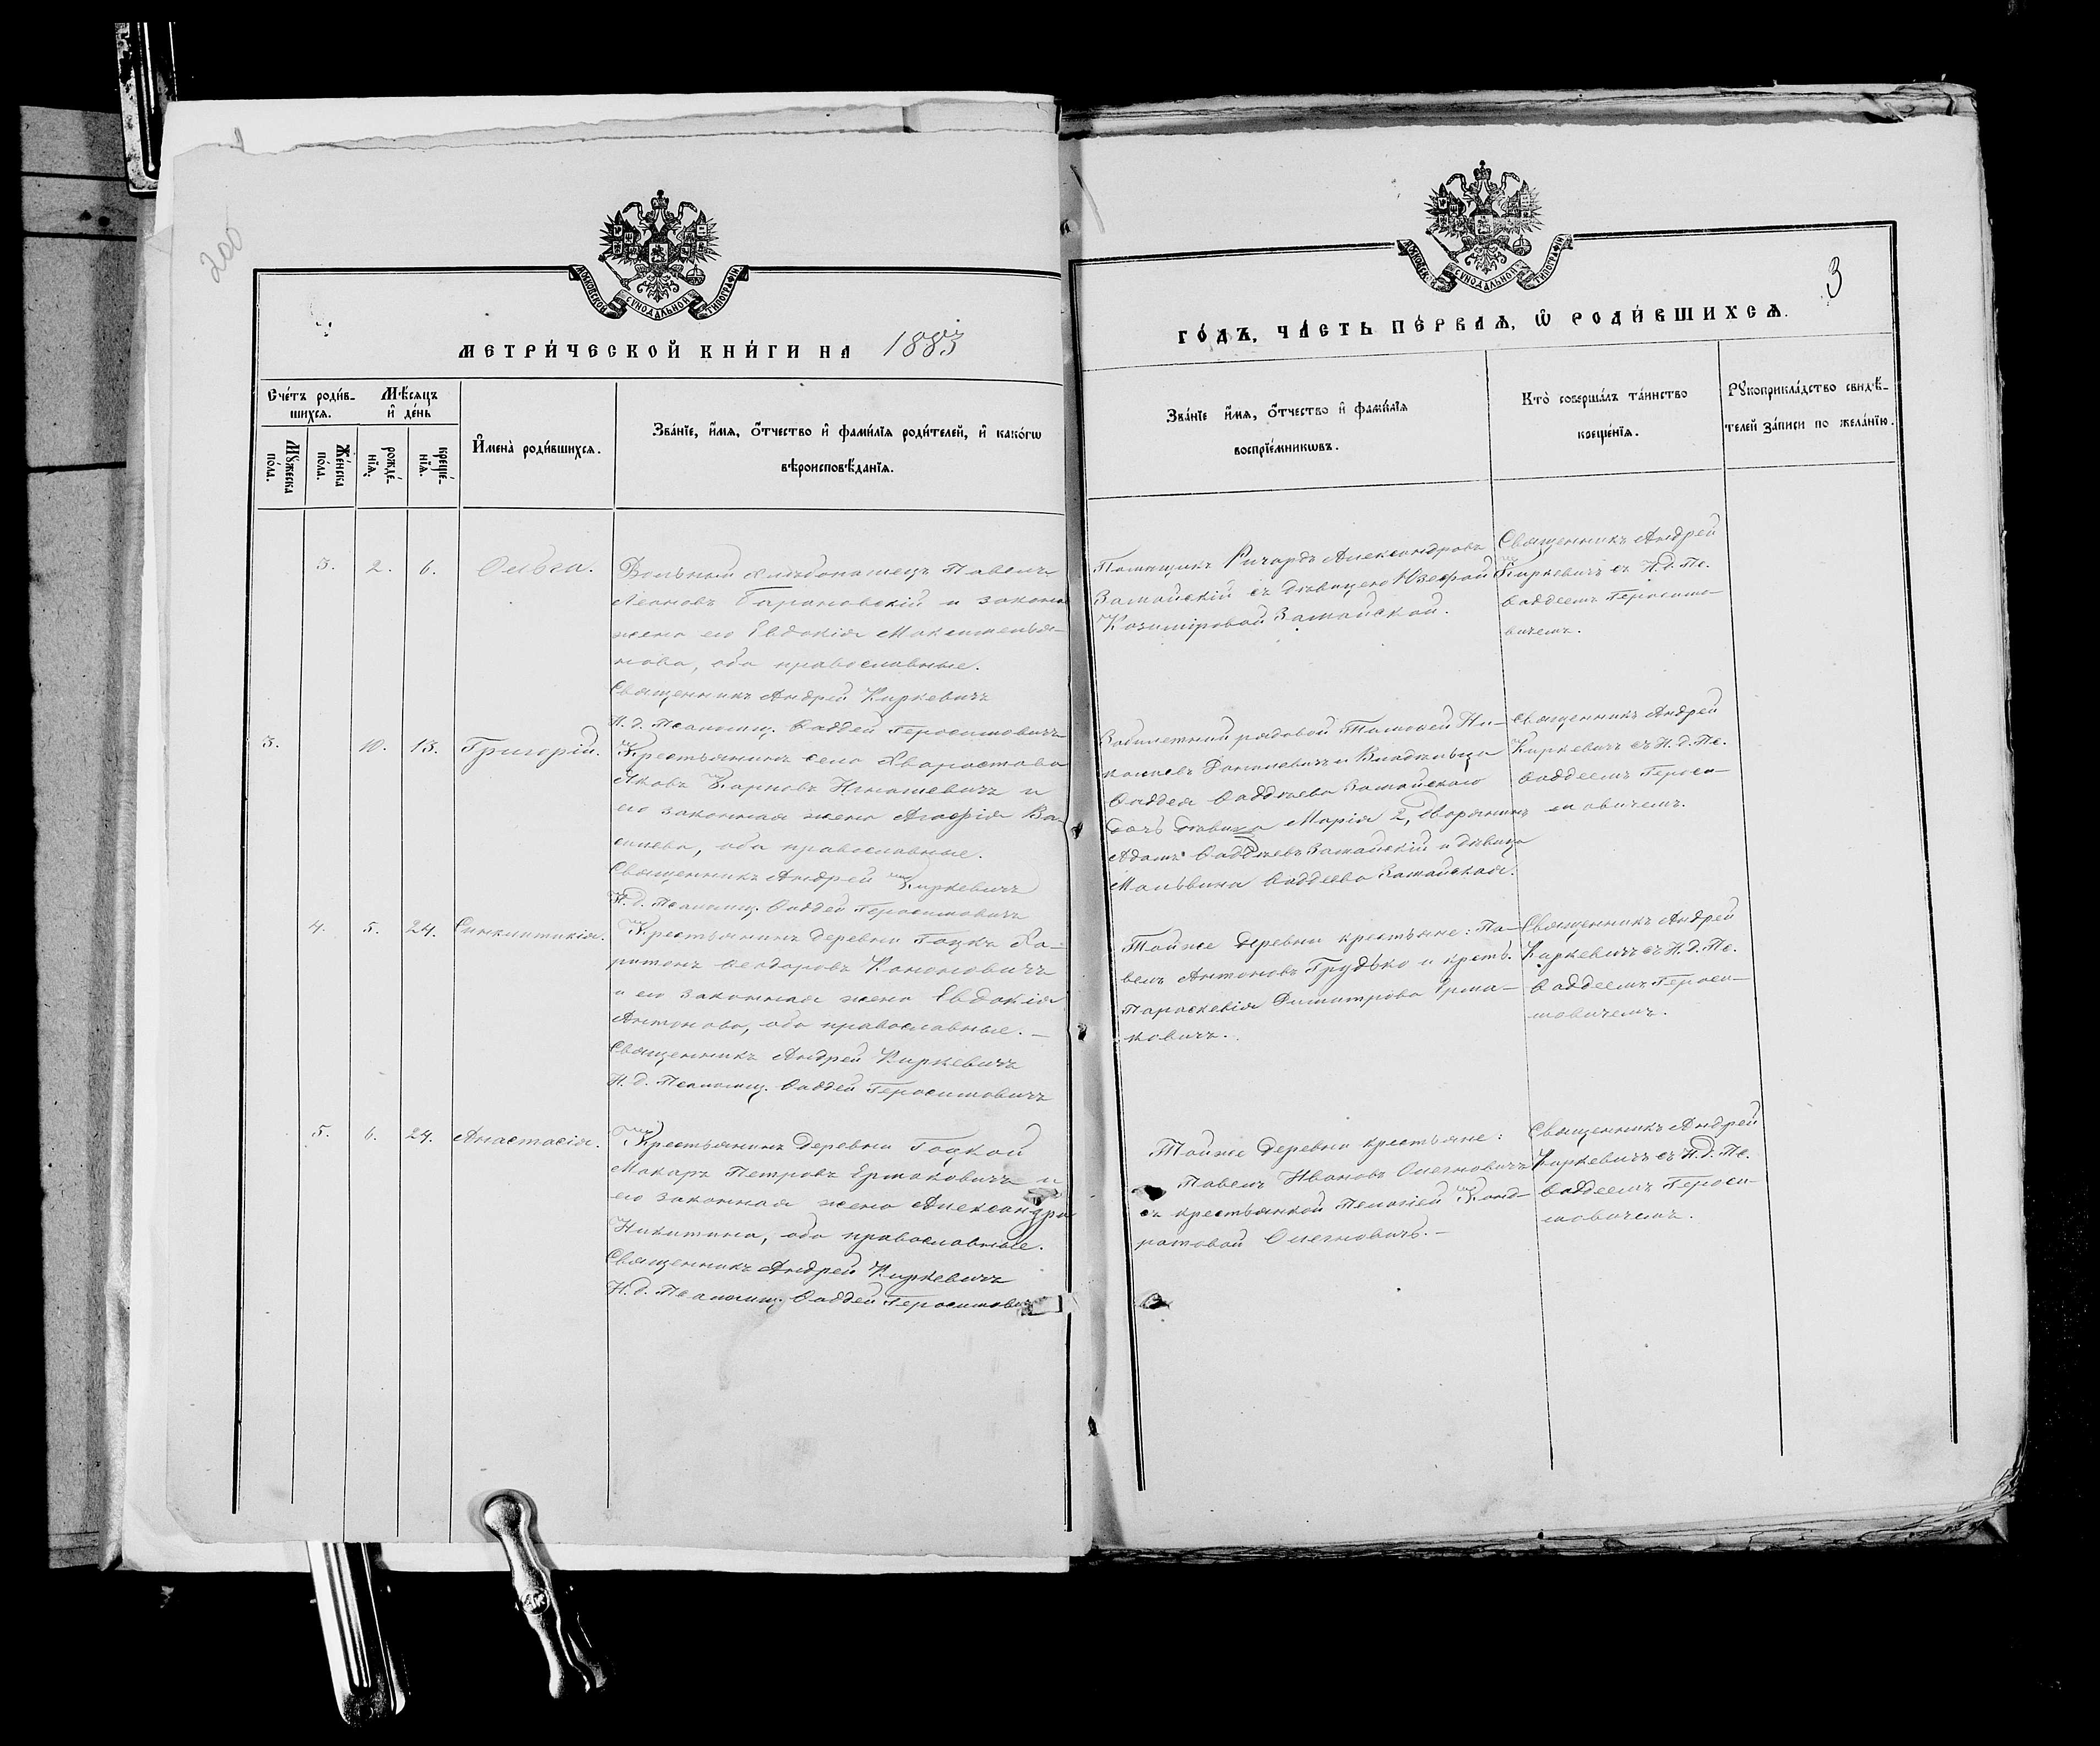 200
МОСКОВСКОЙ СУНОДАЛЬНОЙ ТИПОГРАФІИ
МЕТРИ́ЧЕСКОЙ КНИ́ГИ НА 1883
Сче́тъ роди́в-
шихсѧ.
Мѣ́сѧцъ
и҆ де́нь
Мꙋ́жеска
по́ла.
Же́нска
по́ла.
рожде́-
нїѧ.
креще́-
нїѧ.
И҆мена̀ роди́вшихсѧ.
Зва́нїе, и҆́мѧ, ѻ҆́тчество и҆ фами́лїѧ роди́телей, и҆ како́гѡ
вѣроисповѣ́данїѧ.
3. 2. 6. Ольга.
Вольный хлѣбопашецъ Павелъ
Леоновъ Барановскій и законна
жена его Евдокія Максимилья-
нова, оба православные.
Священникъ Андрей Киркевичъ
И. д. Псаломщ. Фаддей Герасимовичъ
3. 10. 13. Григорій.
Крестьянинъ села Хворостова
Яковъ Карповъ Игнашевичъ и
его законная жена Агафія Ва-
силева, оба православные.
Священникъ Андрей Киркевичъ
И. д. Псаломщ. Фаддей Герасимовичъ
4. 5. 24. Синклитикія.
Крестьянинъ деревни Гоцкъ Ха-
ритонъ Ѳеодоровъ Кононовичъ
и его законная жена Евдокія
Антонова, оба православные. –
Священникъ Андрей Киркевичъ
И. д. Псаломщ. Фаддей Герасимовичъ
5. 6. 24. Анастасія.
Крестьянинъ деревни Гоцкой
Макаръ Петровъ Ермаковичъ и
его законная жена Александра
Никитина, оба православные.
Священникъ Андрей Киркевичъ
И. д. Псаломщ. Фаддей Герасимович
3
МОСКОВСКОЙ СУНОДАЛЬНОЙ ТИПОГРАФІИ
ГО́ДЪ, ЧА́СТЬ ПЕ́РВАѦ, Ѽ РОДИ́ВШИХСѦ.
Зва́нїе и҆́мѧ, ѻ҆́тчество и҆ фами́лїѧ
воспрїе́мникѡвъ.
Кто̀ соверша́лъ та́инство
креще́нїѧ.
Рꙋкоприкла́дство свидѣ́-
телей за́писи по жела́нїю.
Помѣщикъ Ричардъ Александровъ
Замойскій съ дѣвицею Юзефой
Казиміровой Замойской.
Священникъ Андрей
Киркевичъ съ И. д. Пс.
Фаддеемъ Герасимо-
вичемъ.
рядовой Тимофей Ни-
Данилевичъ и Владѣльца
Фаддея Фаддѣева Замойского
дочь дѣвица Марія 2, Дворянинъ
Адамъ Фаддѣевъ Замойскій и дѣвица
Мальвина Фаддеева Замойская.
Священникъ Андрей
Киркевичъ съ И. д. Пс.
Фаддеемъ Гераси-
мовичемъ.
Тойже деревни крестьяне: Па-
велъ Антоновъ Грудько и кресть.
Параскевія Димитрова Ерма-
ковичъ.
Священникъ Андрей
Киркевичъ съ И. д. Пс.
Фаддеемъ Гераси-
мовичемъ.
Тойже деревни крестьяне:
Павелъ Ивановъ Олехновичъ
съ крестьянкой Пелагіей Конд-
ратовой Олехновичъ. –
Священникъ Андрей
Киркевичъ съ И. д. Пс.
Фаддеемъ Гераси-
мовичемъ.